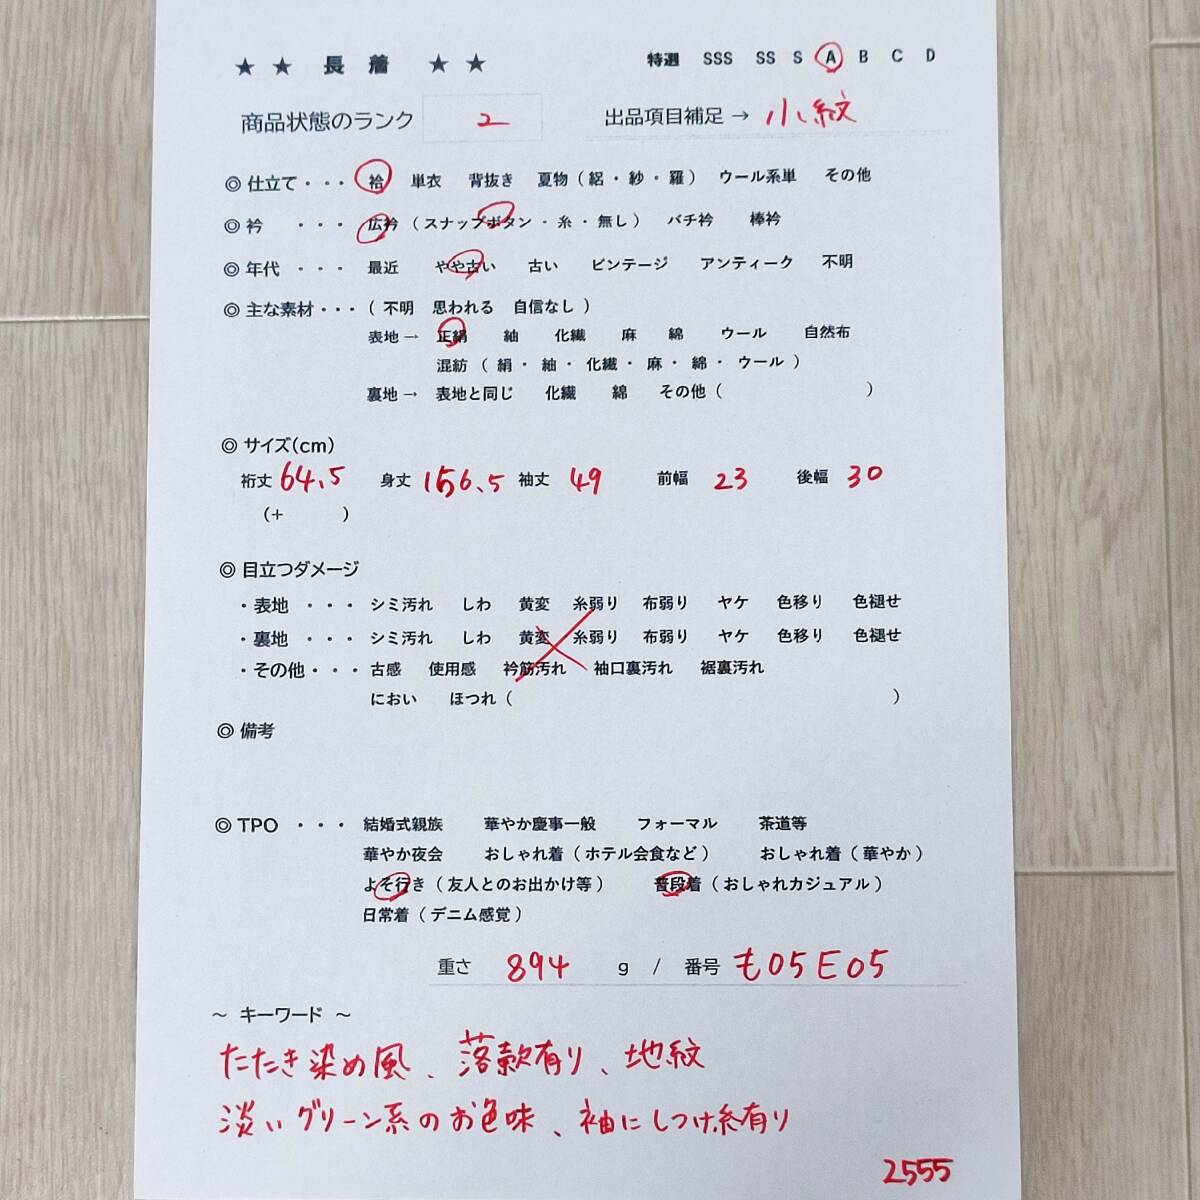 ★ ★ 長 着 ★ ★ 特選 SSS SS S A B C D
商品状態のランク 2 出品項目補足 → 小紋
◎ 仕立て・・・ 袷 単衣 背抜き 夏物（ 絽 ・ 紗 ・ 羅 ） ウール系単 その他
◎ 衿 ・・・ 広衿 （ スナップボタン ・ 糸 ・ 無し ） バチ衿 棒衿
◎ 年代 ・・・ 最近 やや古い 古い ビンテージ アンティーク 不明
◎ 主な素材・・・（ 不明 思われる 自信なし ）
表地 → 正絹 紬 化繊 麻 綿 ウール 自然布
混紡 （ 絹 ・ 紬 ・ 化繊 ・ 麻 ・ 綿 ・ ウール ）
裏地 → 表地と同じ 化繊 綿 その他（ ）
◎ サイズ(cm)
裄丈 64.5 身丈 156.5 袖丈 49 前幅 23 後幅 30
（+ ）
◎ 目立つダメージ
・表地 ・・・ シミ汚れ しわ 黄変 糸弱り 布弱り ヤケ 色移り 色褪せ
・裏地 ・・・ シミ汚れ しわ 黄変 糸弱り 布弱り ヤケ 色移り 色褪せ
・その他・・・ 古感 使用感 衿筋汚れ 袖口裏汚れ 裾裏汚れ
におい ほつれ（ ）
◎ 備考
◎ TPO ・・・ 結婚式親族 華やか慶事一般 フォーマル 茶道等
華やか夜会 おしゃれ着（ ホテル会食など ） おしゃれ着（ 華やか ）
よそ行き（ 友人とのお出かけ等 ） 普段着（ おしゃれカジュアル ）
日常着（ デニム感覚 ）
重さ 894 g / 番号 も05E05
～ キーワード ～
たたき染め風、落款有り、地紋
淡いグリーン系のお色味、袖にしつけ糸有り
2555